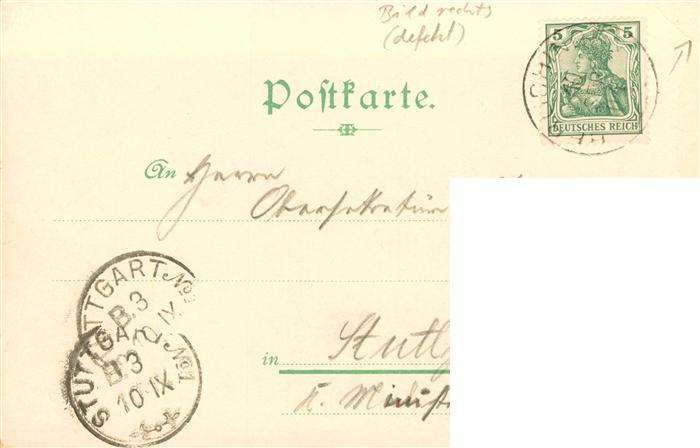 Bild rechts
(defekt)
5 5
DEUTSCHES REICH
Postkarte.
An Herrn
Obersekretär
STUTTGART No1
B.3
10 IX
STUTTGART No1
B.3
10·IX
in Stuttg
K. Minist